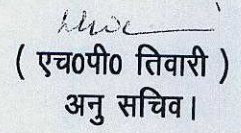 ( एच0पी0 तिवारी )
अनु सचिव।